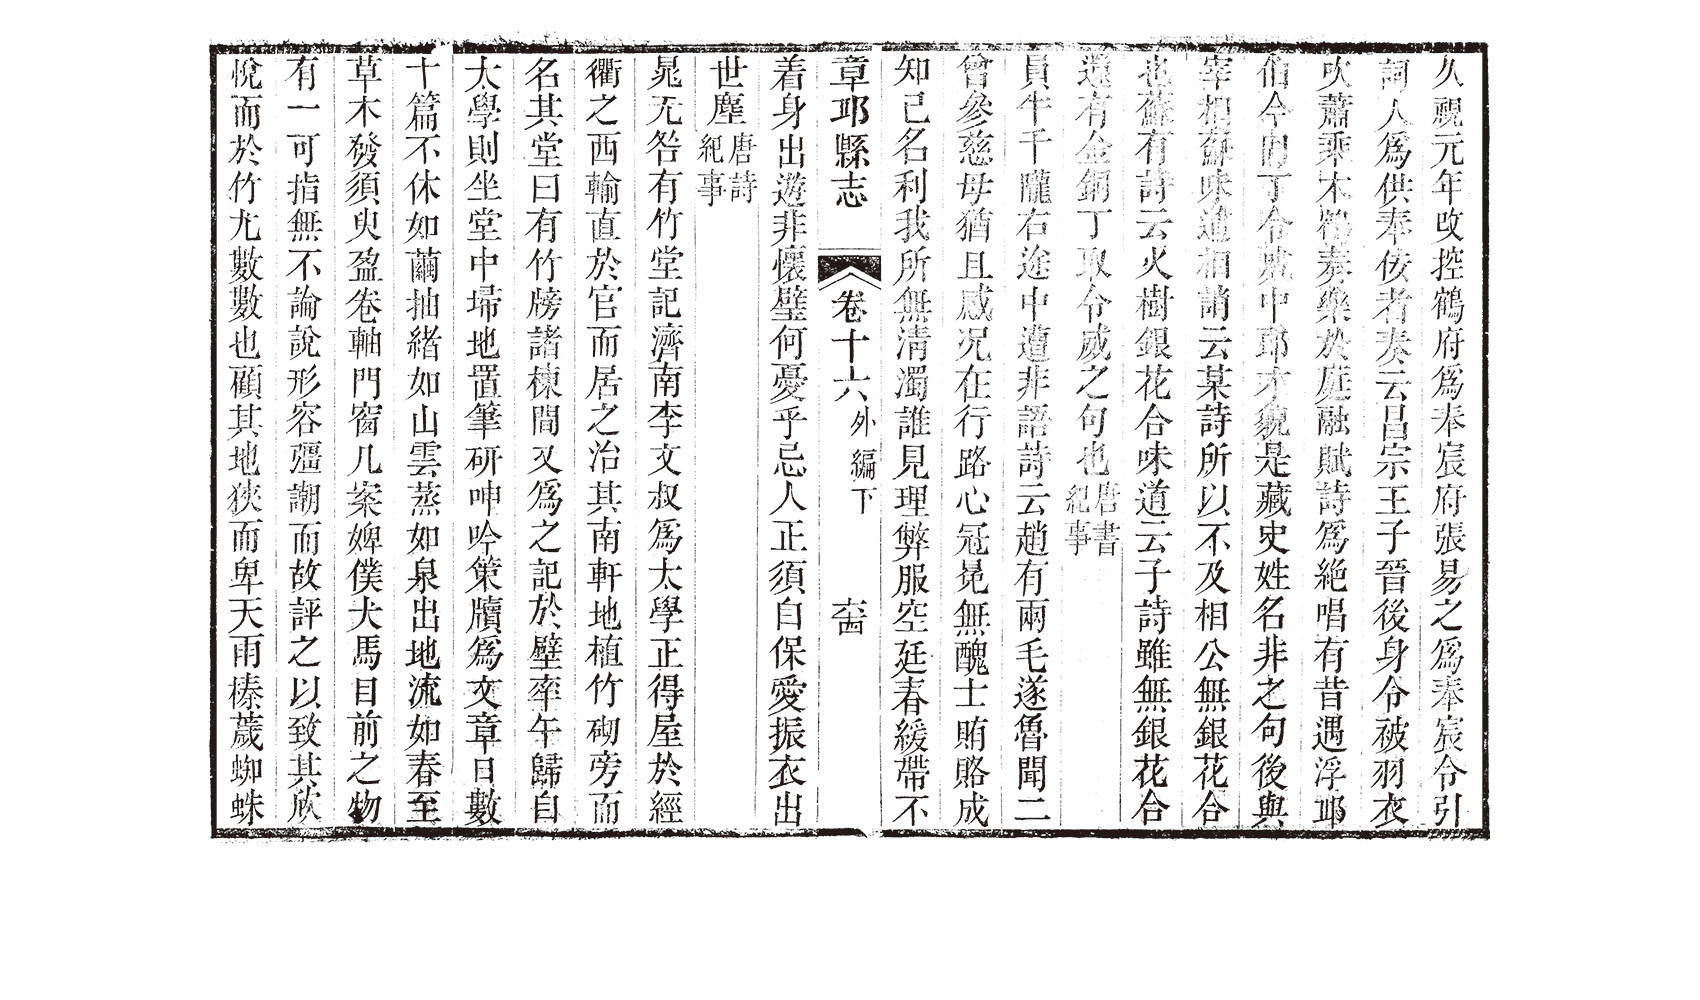 久視元年改控鶴府爲奉宸府張易之爲奉宸令引
詞人爲供奉佞者奏云昌宗王子晉後身令被羽衣
吹蕭乘木鶴奏樂於庭融賦詩爲絶唱有昔遇浮邱
伯今同丁令威中郎才貌是藏史姓名非之句後與
宰相蘇味道相誚云某詩所以不及相公無銀花合
也蘇有詩云火樹銀花合味道云子詩雖無銀花合
還有金銅丁取令威之句也唐書紀事
員半千隴右途中遭非語詩云趙有兩毛遂魯聞二
曾參慈母猶且惑况在行路心冠冕無醜士賄賂成
知己名利我所無清濁誰見理弊服空廷春緩帶不
章邱縣志 卷十六外編下
着身出遊非懷璧何憂乎忌人正須自保愛振衣出
世塵唐詩紀事
晁无咎有竹堂記濟南李文叔爲太學正得屋於經
衢之西輸直於官而居之治其南軒地植竹砌旁而
名其堂曰有竹牓諸棟間又爲之記於壁率午歸自
太學則坐堂中埽地置筆研呻吟策牘爲文章日數
十篇不休如繭抽緒如山雲蒸如泉出地流如春至
草木發須臾盈卷軸門窗几案婢僕犬馬目前之物
有一可指無不論說形容彊謿而故評之以致其欣
悅而於竹尤數數也顧其地狹而卑天雨榛薉蜘蛛